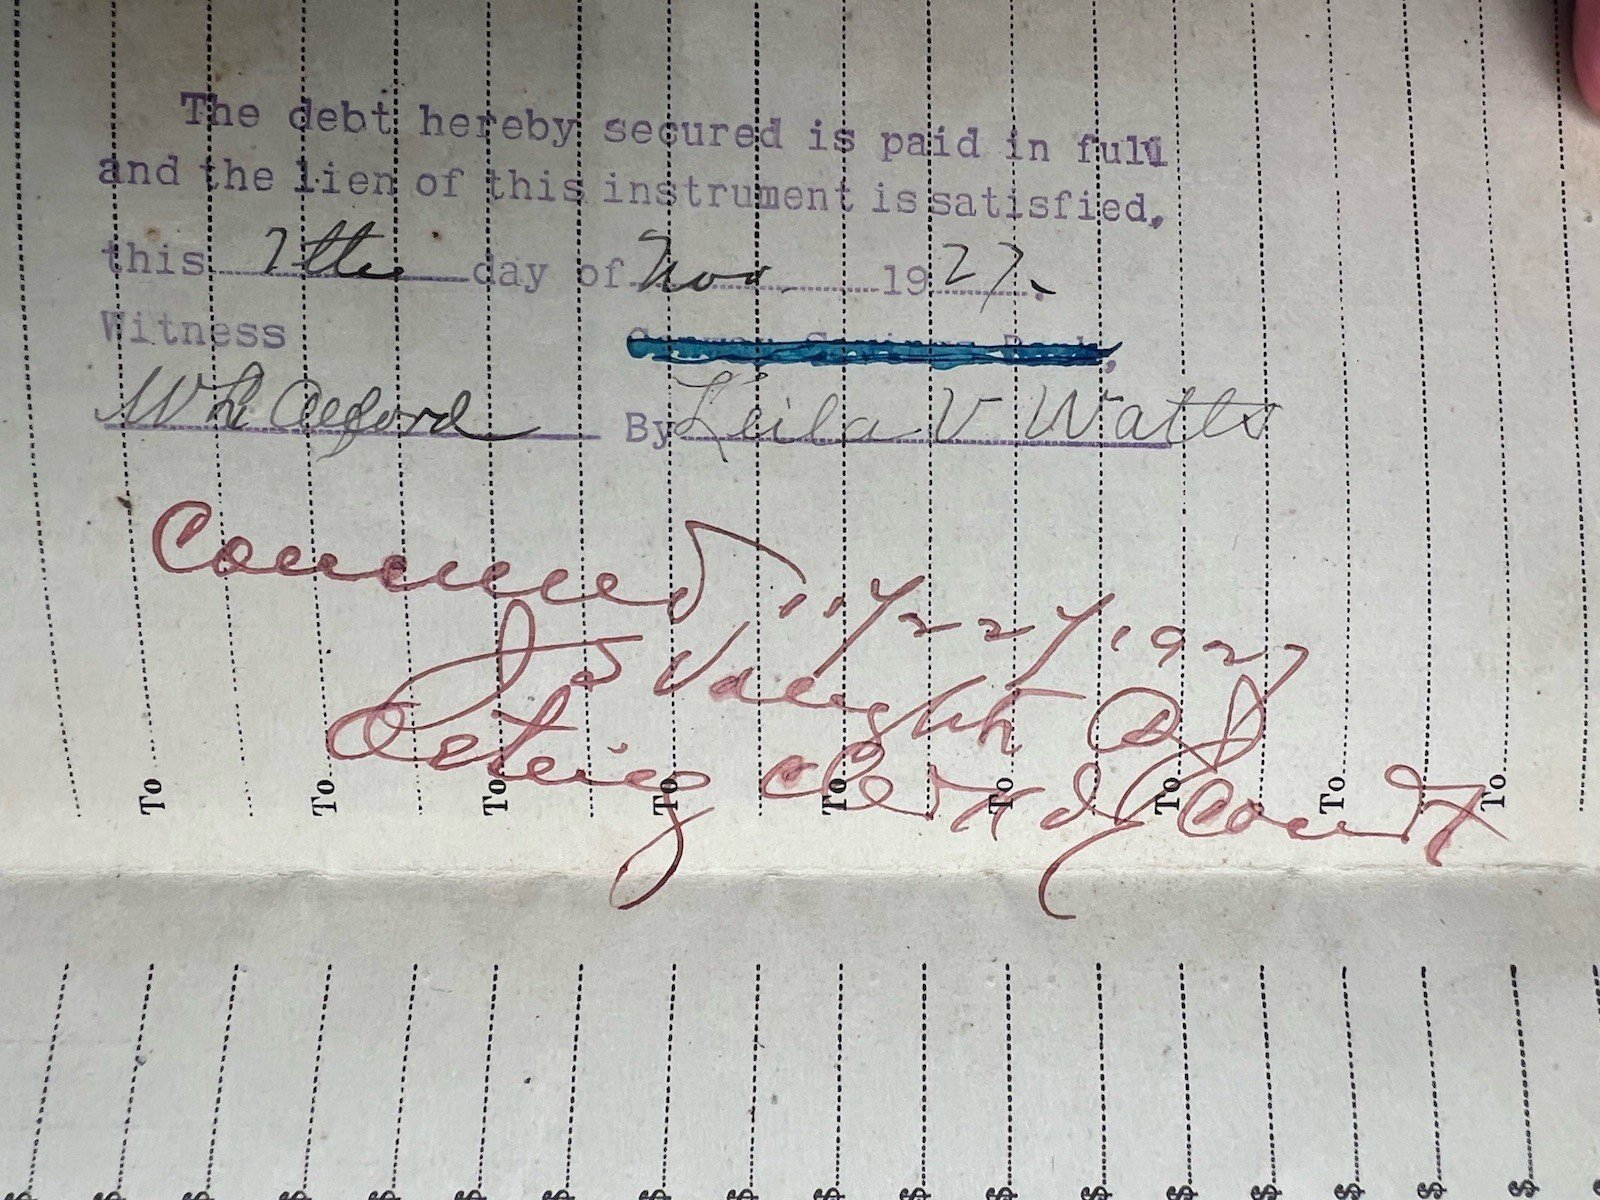 The debt hereby secured is paid in full
and the lien of this instrument is satisfied.
this 7th day of Nov. 1927.
Witness
W L Axford By Leila V Watts
11/22/1927
J S Vaught
Acting Clerk of Court
To To To To To To To To To
$ $ $ $ $ $ $ $ $ $ $ $ $ $ $ $ $ $ $